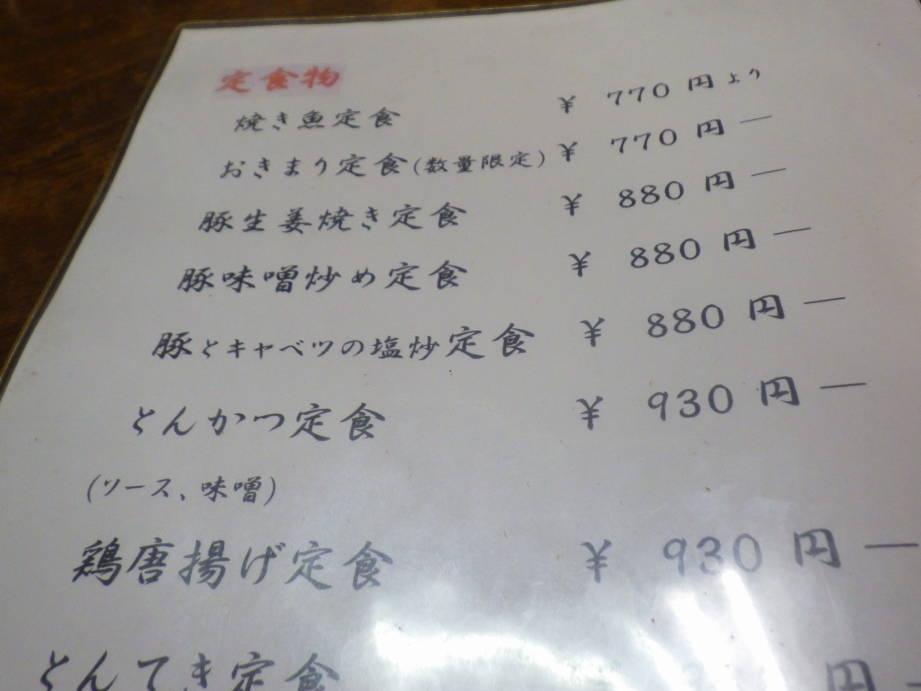 定食物
焼き魚定食 ¥ 770 円より
おきまり定食(数量限定) ¥ 770 円―
豚生姜焼き定食 ¥ 880 円―
豚味噌炒め定食 ¥ 880 円―
豚とキャベツの塩炒定食 ¥ 880 円―
とんかつ定食 ¥ 930 円―
(ソース、味噌)
鶏唐揚げ定食 ¥ 930 円―
とんてき定食 円